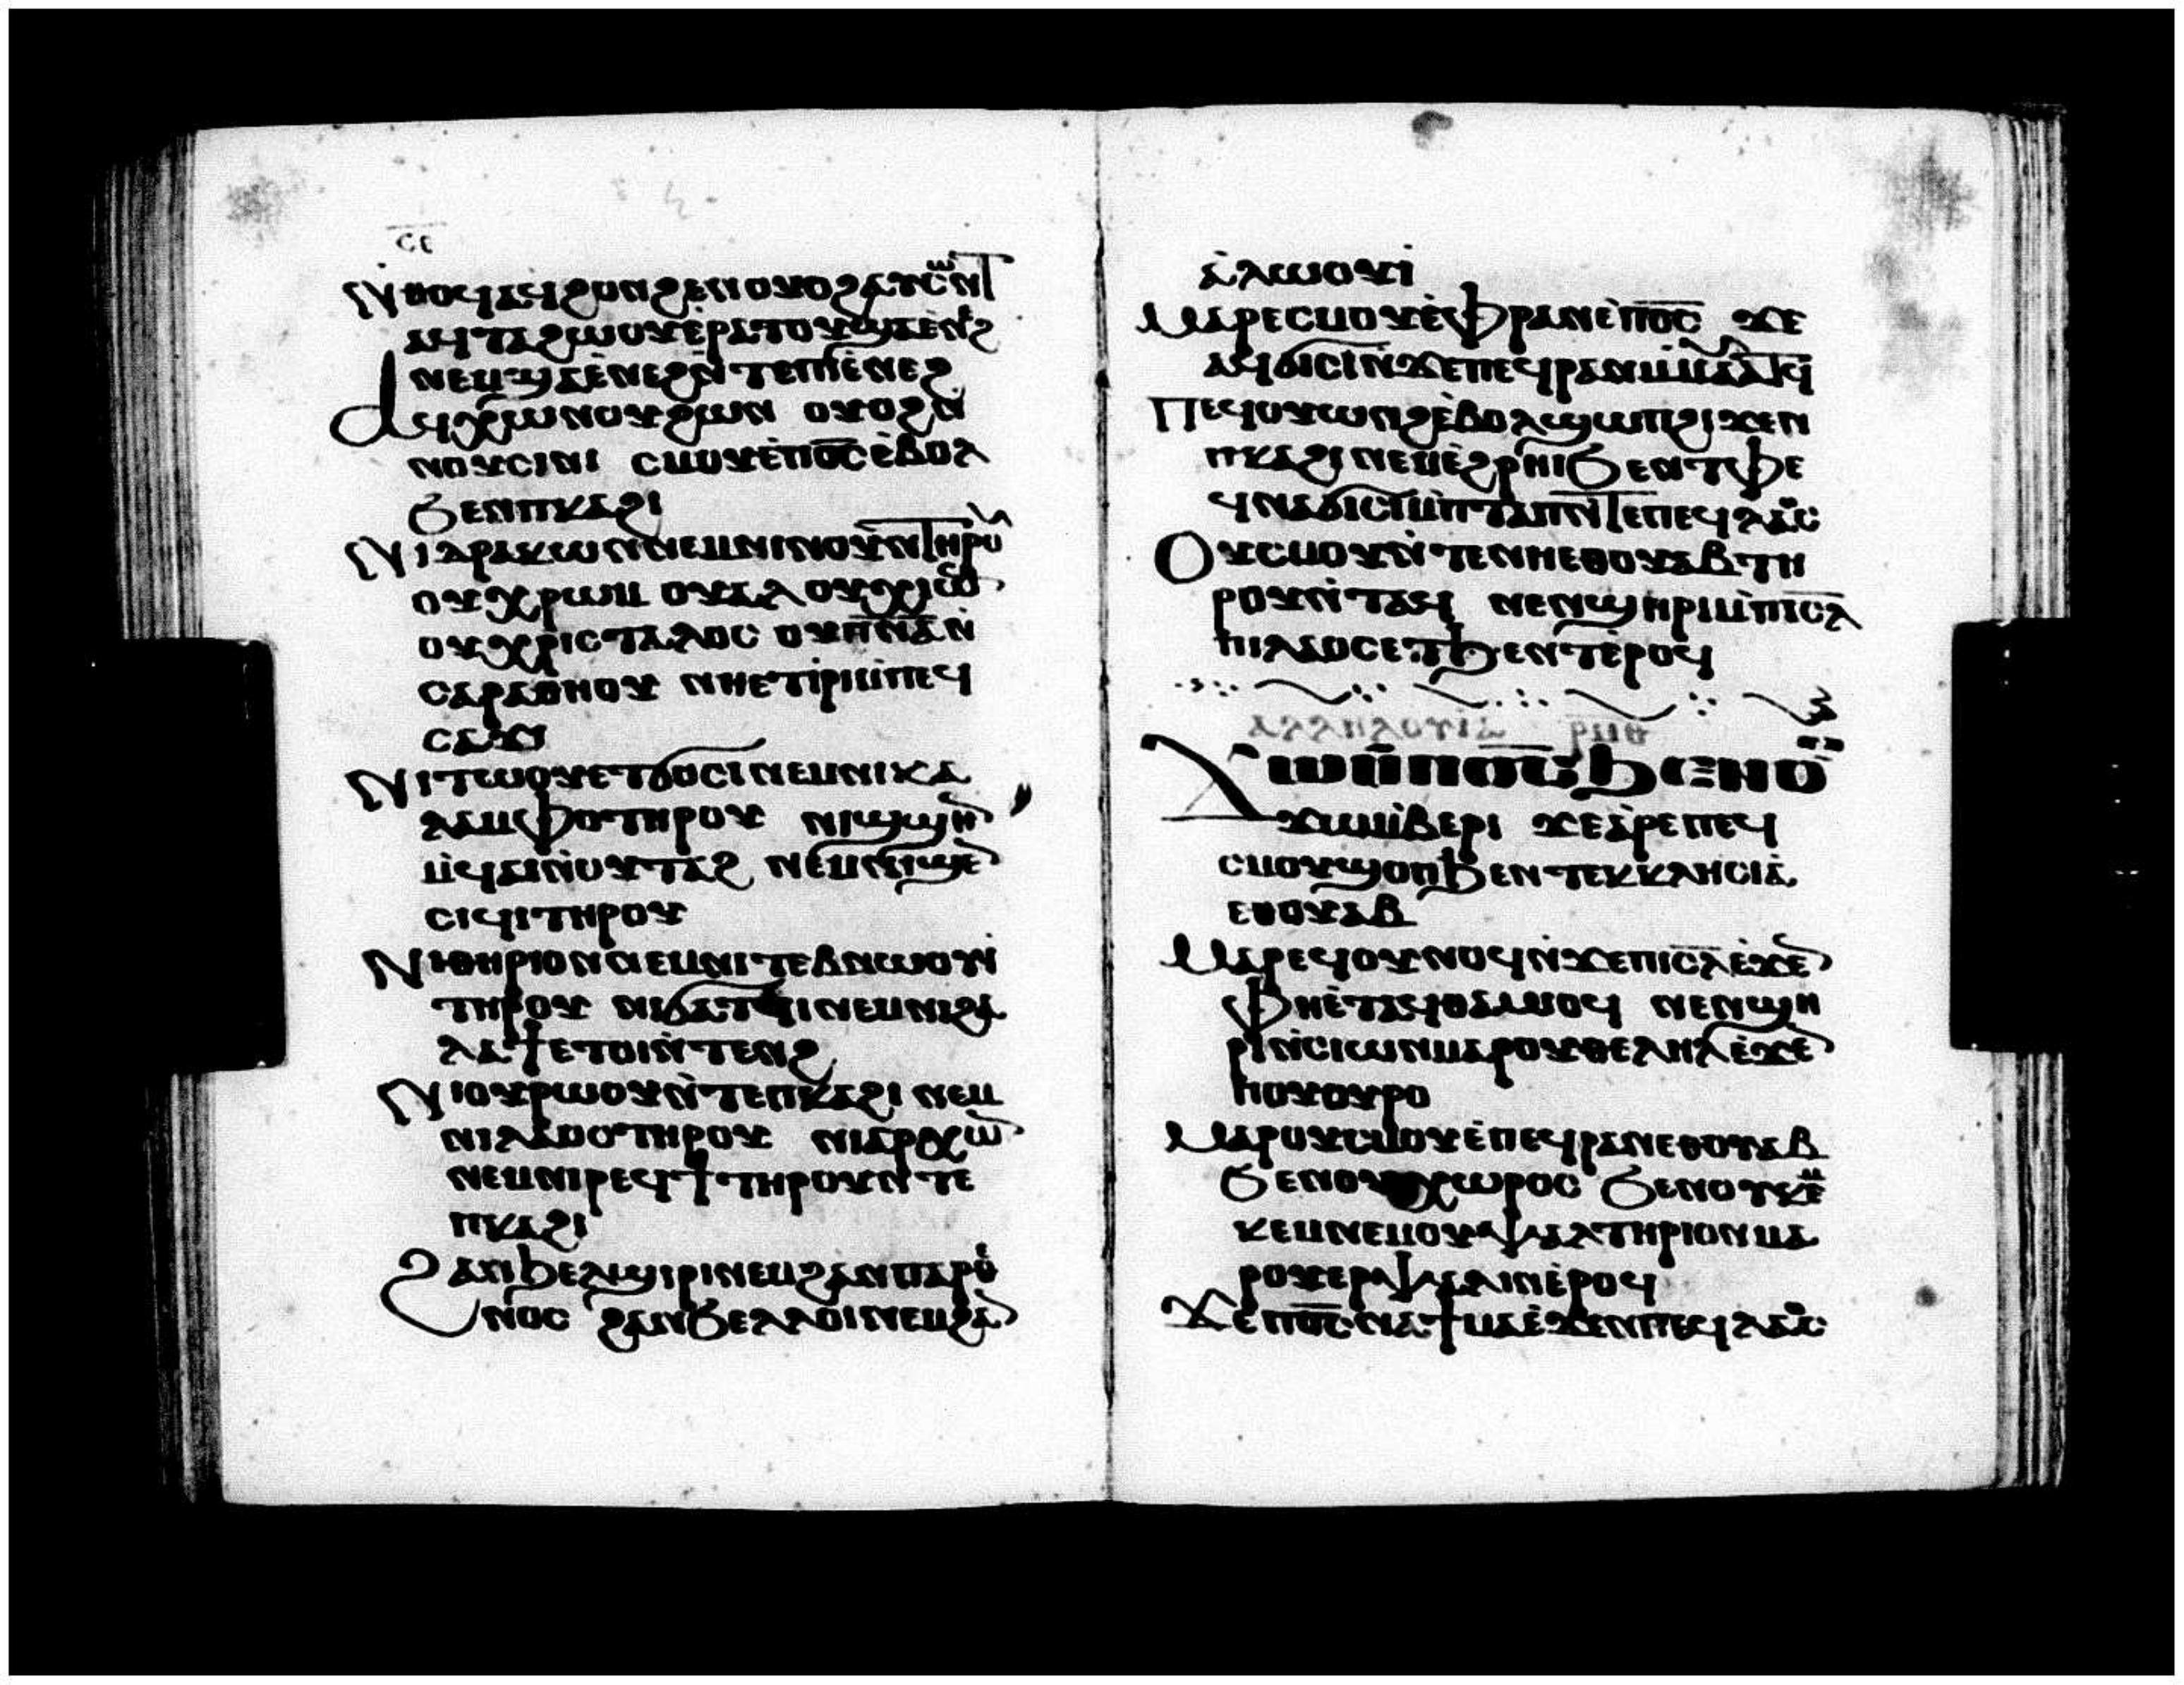 ⲥⲉ
Ⲛⲑⲟϥⲁϥϩⲟⲛϩⲉⲛⲟⲩⲟϩⲁⲩⲥⲱⲛⲧ
ⲁϥⲧⲁϩⲱⲟⲩⲉ̀ⲣⲁⲧⲟⲩϣⲁⲉ̀ⲛϩ
ⲛⲉⲙϣⲁⲉ̀ⲛⲉϩⲛ̀ⲧⲉⲡⲓⲉ̀ⲛⲉϩ
Ⲁϥⲭⲱⲛⲟⲩϩⲱⲛ ⲟⲩⲟϩⲛ
ⲛⲟⲩⲥⲓⲛⲓ ⲥⲙⲟⲩⲉ̀ⲡⲟ̅ⲥ̅ⲉ̀ⲃⲟⲗ
ϧⲉⲛⲡⲕⲁϩⲓ
Ⲛⲓⲇⲣⲁⲕⲱⲛⲛⲉⲙⲛⲓⲛⲟⲩⲛⲧⲏⲣⲟⲩ
ⲟⲩⲭⲣⲱⲙ ⲟⲩⲁⲗⲟⲩⲭⲓⲱ
ⲟⲩⲭⲣⲓⲥⲧⲁⲗⲟⲥ ⲟⲩⲡ̅ⲛ̅ⲁ̅ⲛ̀
ⲥⲁⲣⲁⲑⲏⲟⲩ ⲛⲏⲉⲧⲓ̀ⲣⲓⲙ̀ⲡⲉϥ
ⲥⲁϫⲓ
Ⲛⲓⲧⲱⲟⲩⲉⲧϭⲟⲥⲓⲛⲉⲙⲛⲓⲕⲁ
ⲗⲁⲙⲫⲟⲧⲏⲣⲟⲩ ⲛⲓϣϣⲏ
ⲙ̀ϥⲁⲓⲛ̀ⲟⲩⲧⲁϩ ⲛⲉⲙⲛⲓϣⲉ
ⲥⲓϥⲓⲧⲏⲣⲟⲩ
Ⲛⲓⲑⲏⲣⲓⲟⲛⲛⲉⲙⲛⲓⲧⲉⲃⲛⲱⲟⲩⲓ̀
ⲧⲏⲣⲟⲩ ⲛⲓϭⲁⲧϥⲓⲛⲉⲙⲛⲓϩⲁ
ⲗⲁϯⲉⲧⲟⲓⲛ̀ⲧⲉⲛϩ
Ⲛⲓⲟⲩⲣⲱⲟⲩⲛ̀ⲧⲉⲡⲕⲁϩⲓ ⲛⲉⲙ
ⲛⲓⲗⲁⲟⲥⲧⲏⲣⲟⲩ ⲛⲓⲁⲣⲭⲱ
ⲛⲉⲙⲛⲓⲣⲉϥϯ ⲧⲏⲣⲟⲩⲛ̀ⲧⲉ
ⲡⲕⲁϩⲓ
Ϩⲁⲛϧⲉⲗϣⲓⲣⲓⲛⲉⲙϩⲁⲛⲡⲁⲣⲑ
ⲛⲟⲥ ϩⲁⲛϧⲉⲗⲗⲟⲓⲛⲉⲙϩⲁ
ⲁ̀ⲗⲱⲟⲩⲓ̀
Ⲙⲁⲣⲉⲥⲙⲟⲩⲉ̀ⲫⲣⲁⲛⲉ̀ⲡⲟ̅ⲥ̅ ϫⲉ
ⲁϥϭⲓⲥⲓⲛ̀ϫⲉⲡⲉϥⲣⲁⲛⲙ̀ⲙⲁⲩⲁⲧϥ
Ⲡⲉϥⲟⲩⲱⲛϩⲉ̀ⲃⲟⲗϣⲱⲡϩⲓϫⲉⲛ
ⲡⲕⲁϩⲓⲛⲉⲙⲉ̀ϩⲣⲏⲓϧⲉⲛⲧⲫⲉ
ϥⲛⲁϭⲓⲥⲓⲙ̀ⲡⲧⲁⲡⲛ̀ⲧⲉⲡⲉϥⲗⲁⲟⲥ
Ⲟⲩⲥⲙⲟⲩⲛ̀ⲧⲉⲛⲏⲉⲑⲟⲩⲁⲃⲧⲏ
ⲣⲟⲩⲛ̀ⲧⲁϥ ⲛⲉⲛϣⲏⲣⲓⲙ̀ⲡⲓⲥⲗ
ⲡⲓⲗⲁⲟⲥⲉⲧϧⲉⲛⲧⲉ̀ⲣⲟϥ
ⲁⲗⲗⲏⲗⲟⲩⲓⲁ ⲣⲙⲑ
Ϫⲱⲙ̀ⲡⲟ̅ⲥ̅ϧⲉⲛⲟⲩ
ϫⲱⲙ̀ⲃⲉⲣⲓ ϫⲉⲁ̀ⲣⲉⲡⲉϥ
ⲥⲙⲟⲩϣⲟⲡϧⲉⲛⲧⲉⲕⲕⲗⲏⲥⲓⲁ̀
ⲉⲑⲟⲩⲁⲃ
Ⲙⲁⲣⲉϥⲟⲩⲛⲟϥⲛ̀ϫⲉⲡⲓⲥ̅ⲗ̅ⲉ̀ϫⲉ
ⲫⲏⲉ̀ⲧⲁϥⲑⲁⲙⲓⲟϥ ⲛⲉⲛϣⲏ
ⲣⲓⲛ̀ⲥⲓⲱⲛⲙⲁⲣⲟⲩⲑⲉⲗⲏⲗⲉ̀ϫⲉ
ⲡⲟⲩⲟⲩⲣⲟ
Ⲙⲁⲣⲟⲩⲥⲙⲟⲩⲉ̀ⲡⲉϥⲣⲁⲛⲉⲑⲟⲩⲁⲃ
ϧⲉⲛⲟⲩⲭⲱⲣⲟⲥ ϧⲉⲛⲟⲩⲕⲉⲙ
ⲕⲉⲙⲛⲉⲙⲟⲩⲯⲁⲗⲧⲏⲣⲓⲟⲛⲙⲁ
ⲣⲟⲩⲉⲣⲯⲁⲗⲓⲛⲉ̀ⲣⲟϥ
Ϫⲉ ⲡⲟ̅ⲥ̅ⲛⲁϯⲙⲁⲉ̀ϫⲉⲛⲡⲉϥⲗⲁⲟⲥ